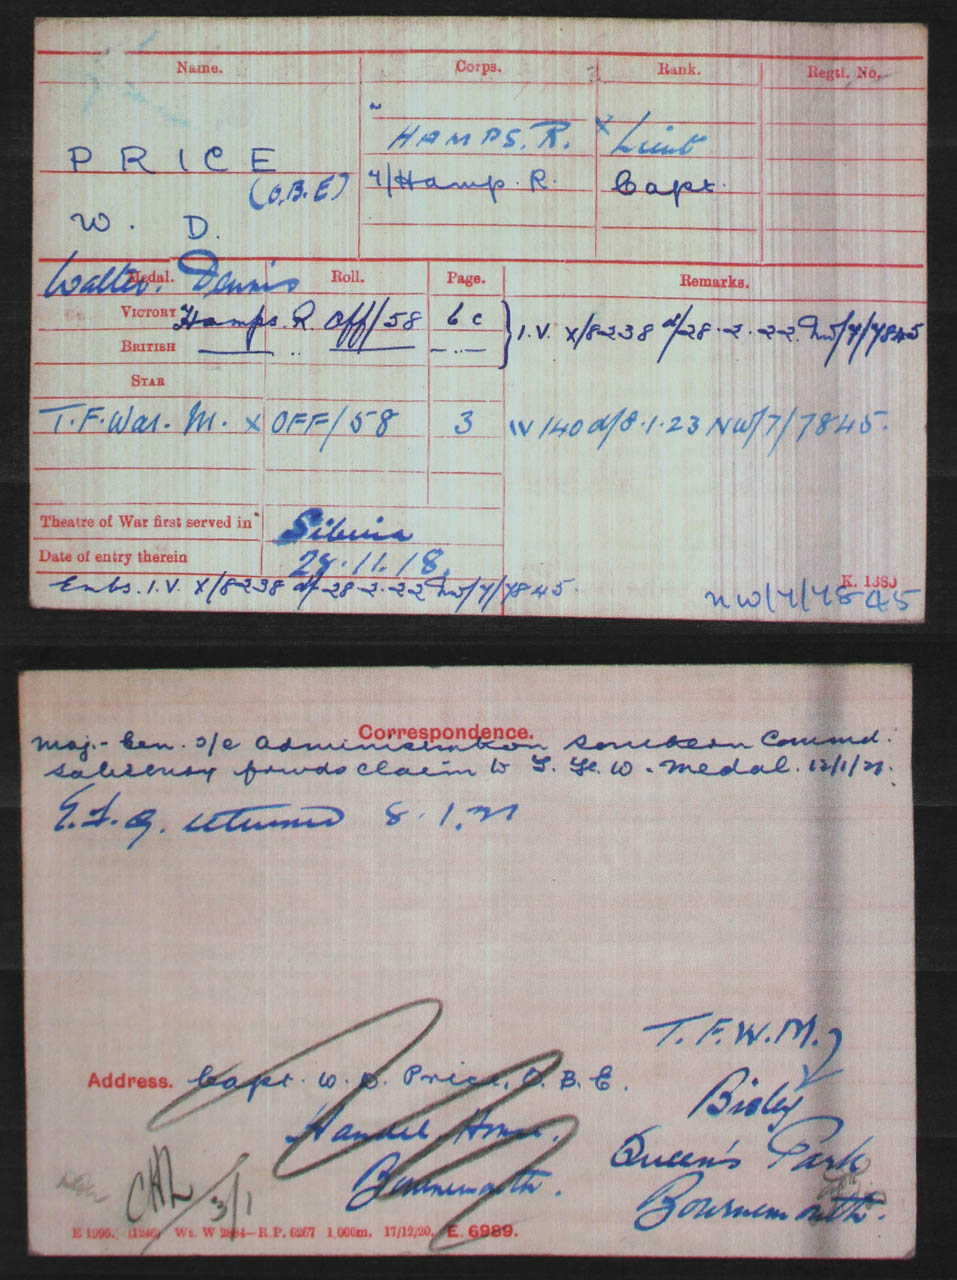 Name. Corps. Rank. Regtl. No.
HAMPS. R. X Lieut
PRICE
(O.B.E) 4/Hamp. R. Capt.
W. D.
Walter Dennis
Medal. Roll. Page. Remarks.
VICTORY Hamps. R. Off/58 6c } I.V. X/8238 d/28.2.22 NW/7/7845
BRITISH — .. — — .. —
STAR
T.F. War. M. X OFF/58 3 IV/140 d/8.1.23 NW/7/7845.
Theatre of War first served in Siberia
Date of entry therein 29.11.18.
Embs. I.V. X/8238 d/-28-2-22 NW/7/7845.
K. 1380
NW/7/7845
Correspondence.
Maj.-Gen. i/c Administration Southern Command.
Salisbury fwds claim to T.F.W. Medal. 12/1/21.
returned 8.1.21
T.F.W.M.
Address. Capt. W. D. Price, O.B.E.
Bisley
Handel House.
Queen's Park
Bournemouth.
Bournemouth.
3/1
E 1995. (1240) Wt. W 2884—R.P. 6267 1,000m. 17/12/20. E. 6989.